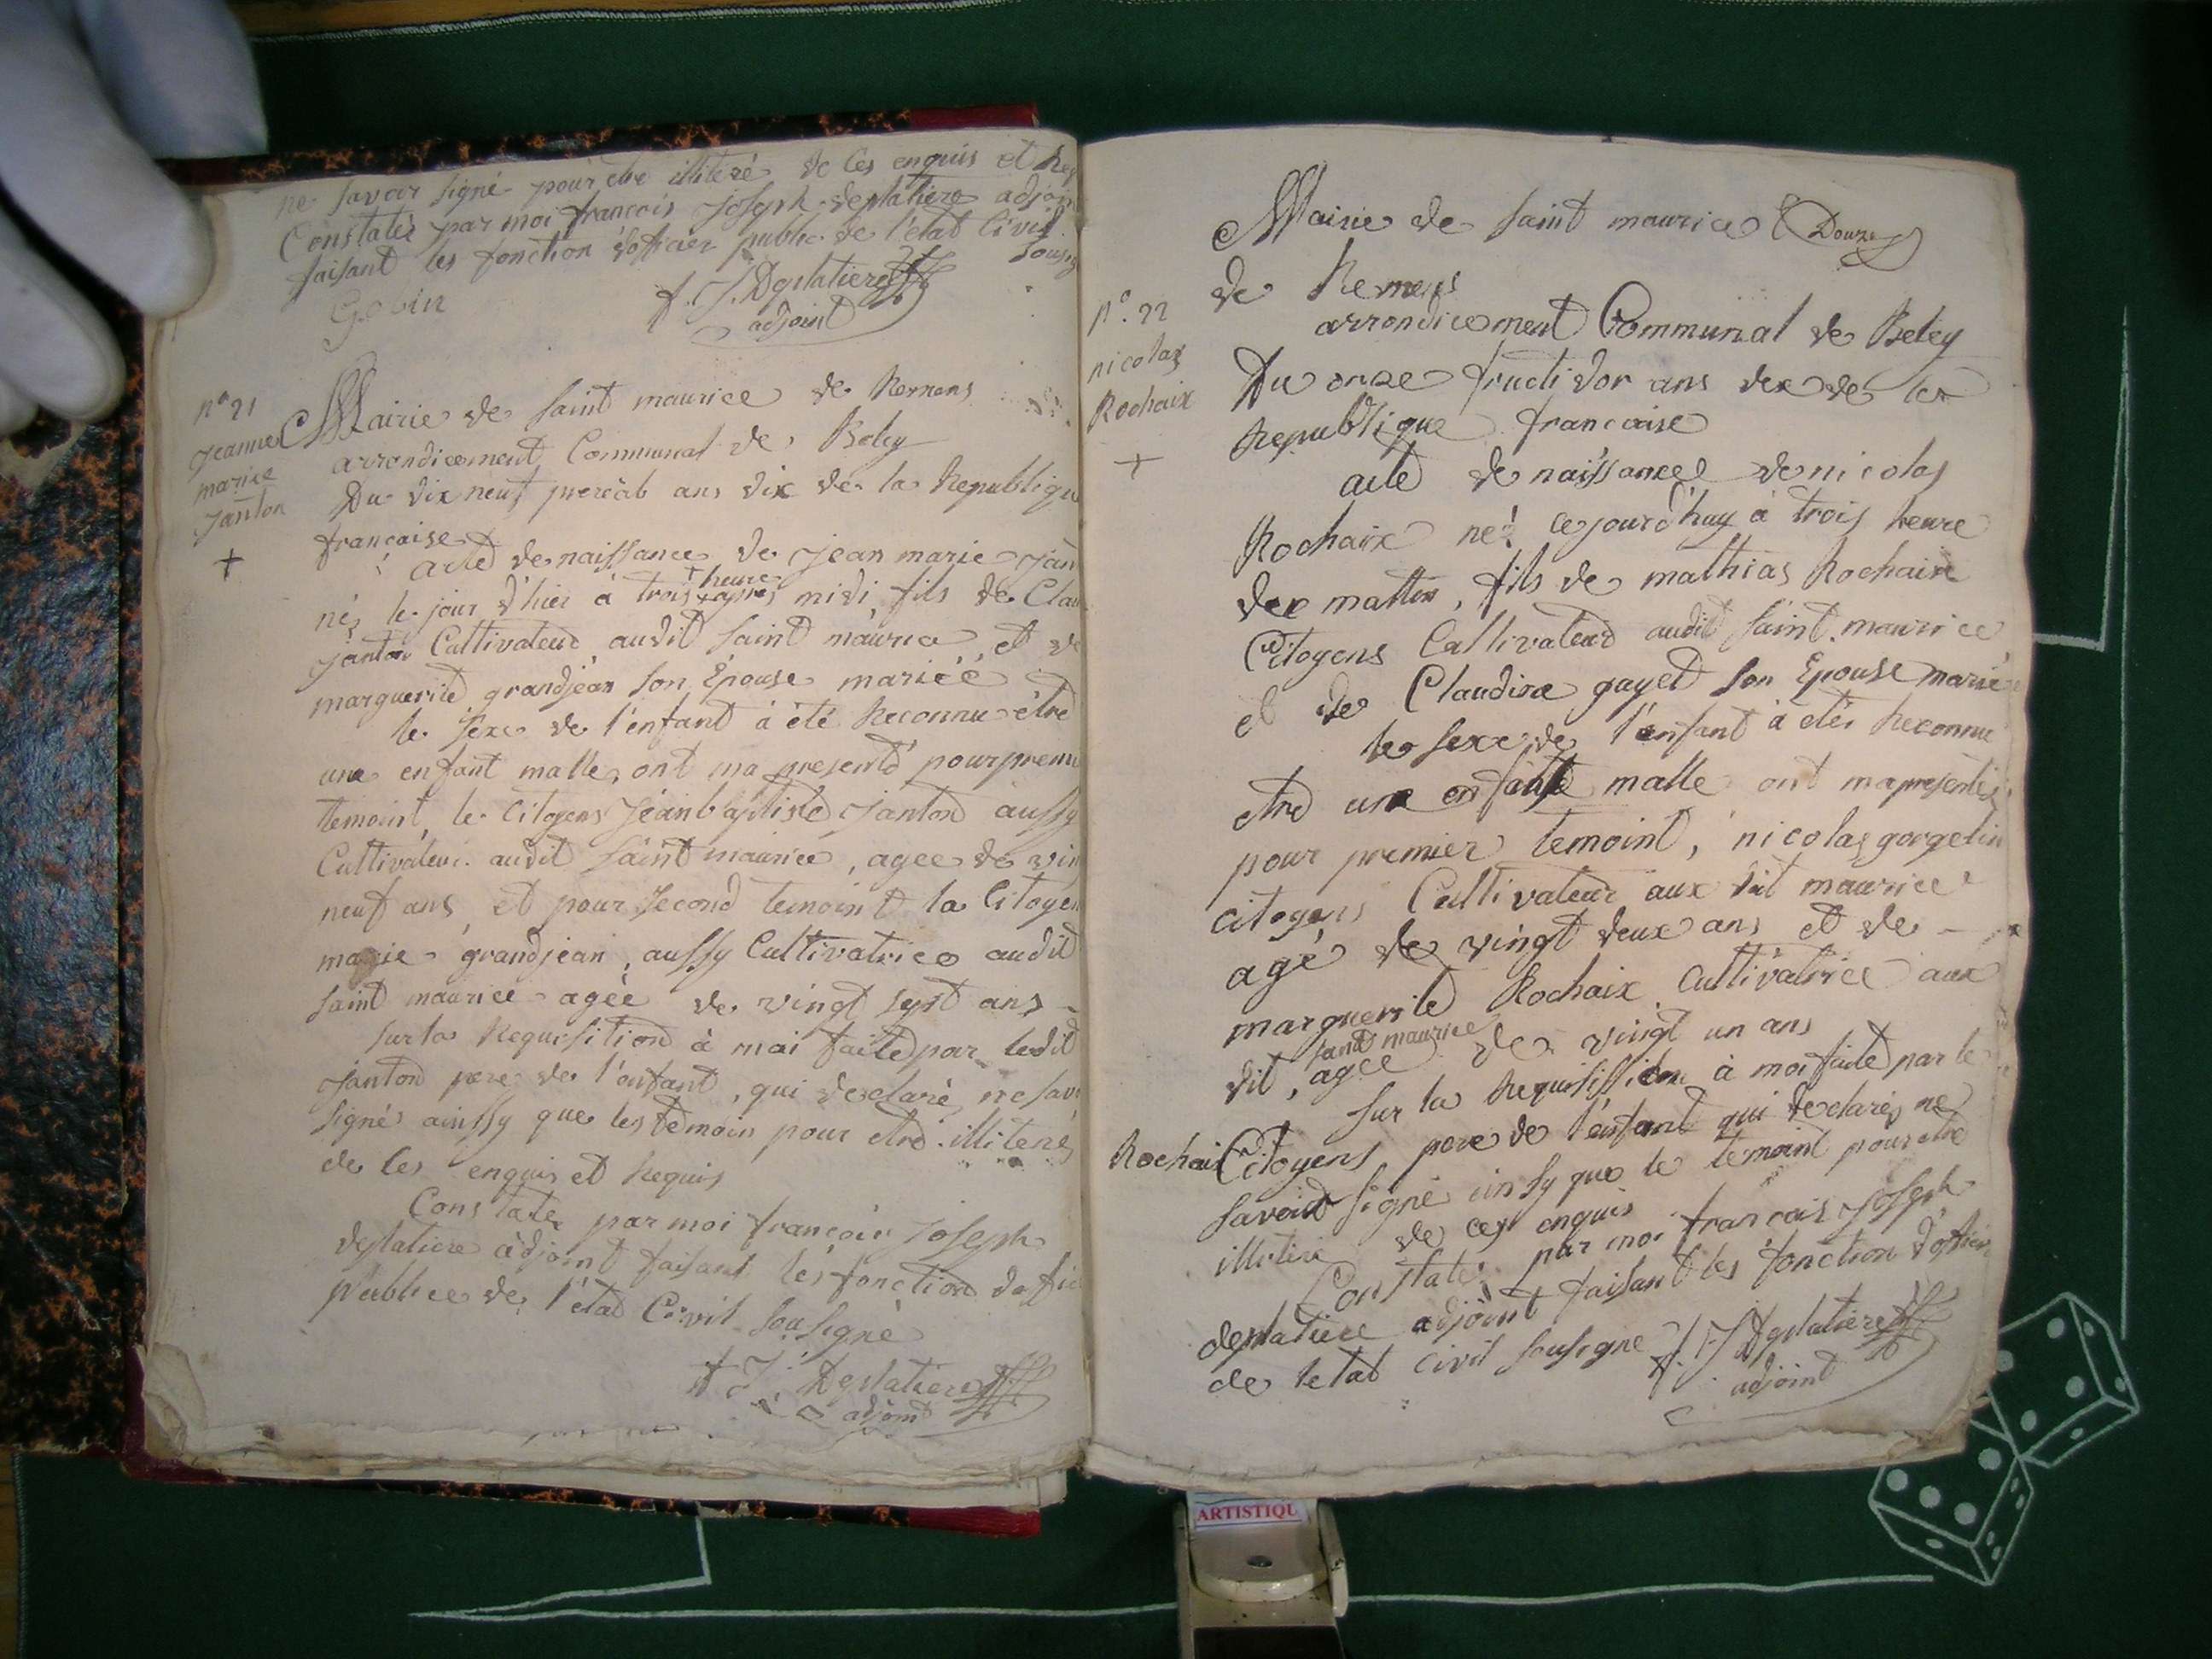 ne savoir signé pour etre illiteré de ces enquis et
Constatés par moi francois Joseph deplatiere
faisant les fonction dofficier public de l'état Civil
Gobin
f. J. Deplatiere
adjoint
n° 21
jeanne
marie
janton
+
Mairie de saint maurice de Remens
arrondicement Communal de Beley
Du dix neuf ans dix de la Republiqu
francaise
acte de naissance de jean marie jan
heure
né le jour d'hier à trois apres midi, fils de Clau
janton Cultivateur audit saint maurice, et de
marguerite grandjean son Epouse mariéé
le sexe de l'enfant à été Reconnu être
une enfant malle, ont ma presenté pour premi
temoint, le Citoyens jean baptiste janton aussy
Cultivateur audit saint maurice, agee de vin
neuf ans et pour second temoint la Citoyen
marie grandjean, aussy Cultivatrice audit
saint maurice agéé de vingt sept ans
sur la Requisition à moi faite par ledit
janton pere de l'enfant, qui declaré ne sav
signé ainssy que les temoin pour etre illiteré
de ces enquis et Requis
Constaté par moi francois Joseph
deplatiere adjoint faisant les fonction dofic
publice de l'état Civil sousigné
f J. Deplatiere
adjoint
Mairie de saint maurice Douze
de Remens
n°. 22
nicolas
Rochaix
+
arrondicement Communal de Beley
Du onze fructidor ans dix de la
Republique francaise
acte de naissance de nicolas
Rochaix né cejourd'huy à trois heure
de mattin, fils de mathias Rochaix
Citoyens Cultivateur audit saint maurice
et de Claudine gayet son Epouse marié
le sexe de l'enfant à étés Reconnu
etre une enfant malle ont ma presentés
pour premier temoint, nicolas gorgelin
citoyens Cultivateur aux dit maurice
agé de vingt deux ans et de
marguerite Rochaix Cultivatrice aux
saint maurice
dit, agee de vingt un ans
sur la Requisission à moi faite par le
Rochaix Citoyens pere de l'enfant qui declarés ne
savoir signé ainsy que le temoint pour etre
illitiré de ces enquis
Constaté par moi francois Joseph
deplatiere adjoint faisant les fonction d'oficier
de letat civil sousigne f. J Deplatiere
adjoint
ARTISTIQU